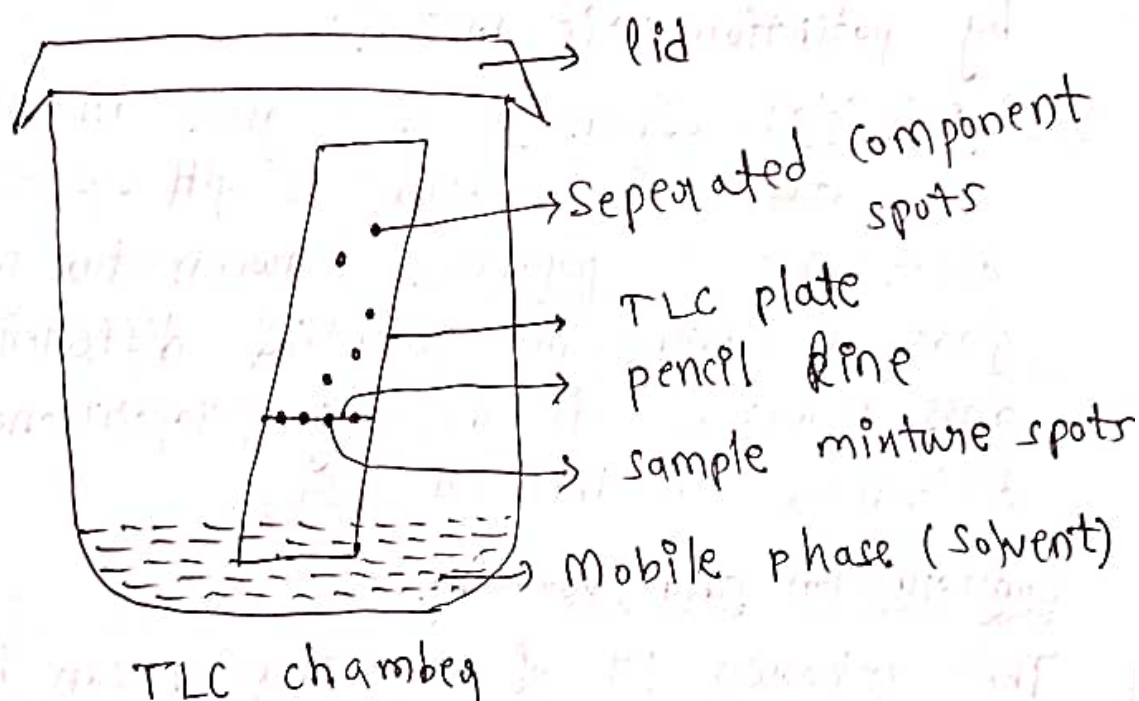 lid
Seperated component
spots
TLC plate
pencil line
sample minture spots
Mobile phase (solvent)
TLC chamber